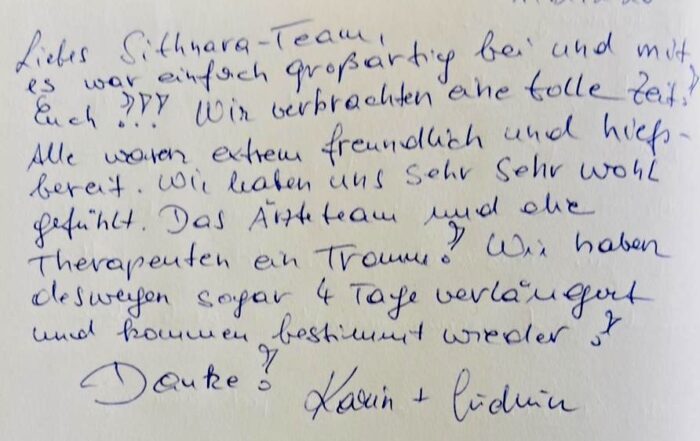 Liebes Sithnara-Team,
es war einfach großartig bei und mit
Euch !!! Wir verbrachten eine tolle Zeit!
Alle waren extrem freundlich und hilfs-
bereit. Wir haben uns sehr sehr wohl
gefühlt. Das Ärzteteam und die
Therapeuten ein Traum! Wir haben
deswegen sogar 4 Tage verlängert
und kommen bestimmt wieder!
Danke! Karin +